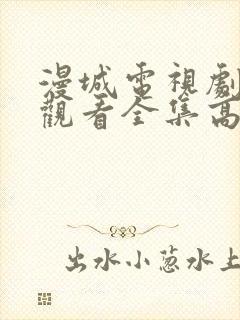 漫城電視劇
觀看全集高
出水小蔥水上